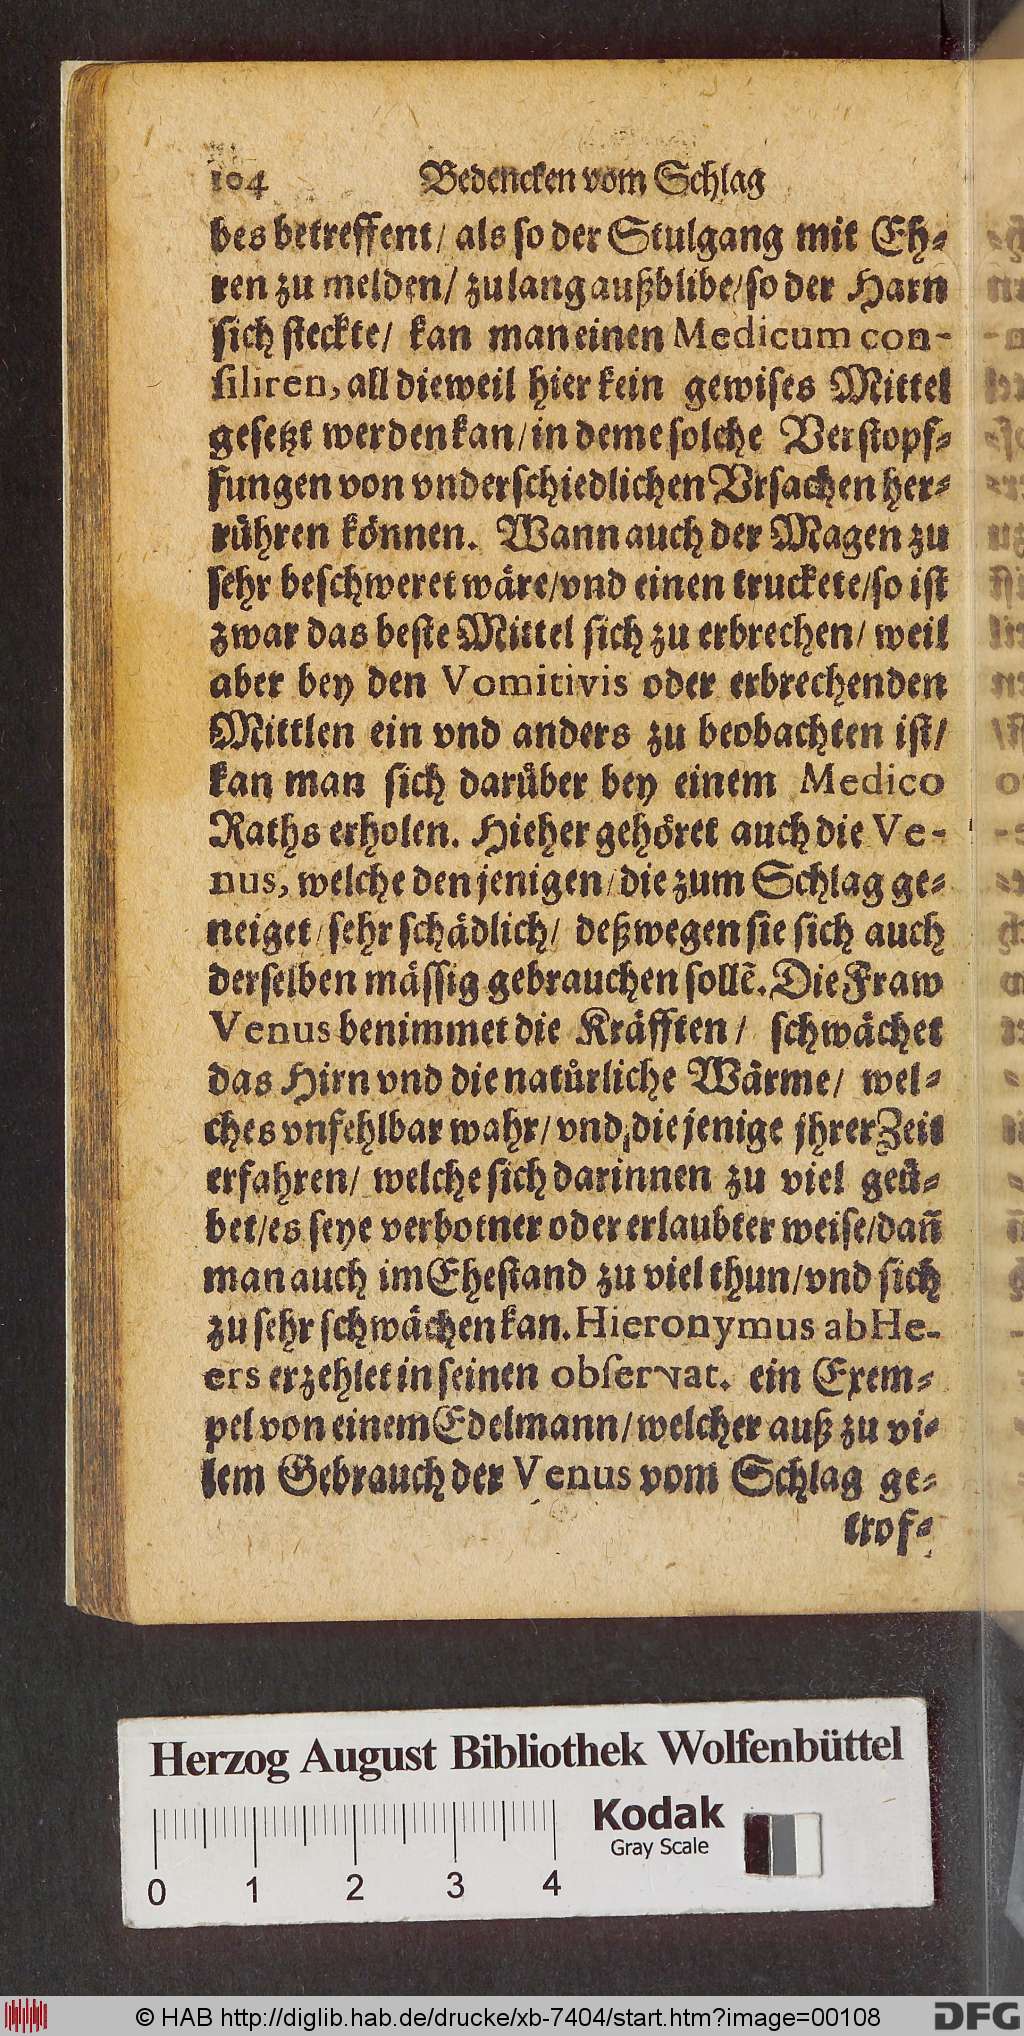 104 Bedencken vom Schlag
bes betreffent/ als so der Stulgang mit Eh-
ren zu melden/ zu lang außblibe/ so der Harn
sich steckte/ kan man einen Medicum con-
siliren, all dieweil hier kein gewises Mittel
gesetzt werden kan/ in deme solche Verstopf-
fungen von vnderschiedlichen Vrsachen her-
rühren können. Wann auch der Magen zu
sehr beschweret wäre/ vnd einen truckete/ so ist
zwar das beste Mittel sich zu erbrechen/ weil
aber bey den Vomitivis oder erbrechenden
Mittlen ein vnd anders zu beobachten ist/
kan man sich darüber bey einem Medico
Raths erholen. Hieher gehöret auch die Ve-
nus, welche denjenigen/ die zum Schlag ge-
neiget/ sehr schädlich/ deßwegen sie sich auch
derselben mässig gebrauchen sollẽ. Die Fraw
Venus benimmet die Kräfften/ schwächet
das Hirn vnd die natürliche Wärme/ wel-
ches vnfehlbar wahr/ vnd diejenige jhrer Zeit
erfahren/ welche sich darinnen zu viel geü-
bet/ es seye verbotner oder erlaubter weise/ dañ
man auch im Ehestand zu viel thun/ vnd sich
zu sehr schwächen kan. Hieronymus ab He-
ers erzehlet in seinen observat. ein Exem-
pel von einem Edelmann/ welcher auß zu vi-
lem Gebrauch der Venus vom Schlag ge-
trof-
Herzog August Bibliothek Wolfenbüttel
Kodak
Gray Scale
0 1 2 3 4
© HAB http://diglib.hab.de/drucke/xb-7404/start.htm?image=00108
DFG